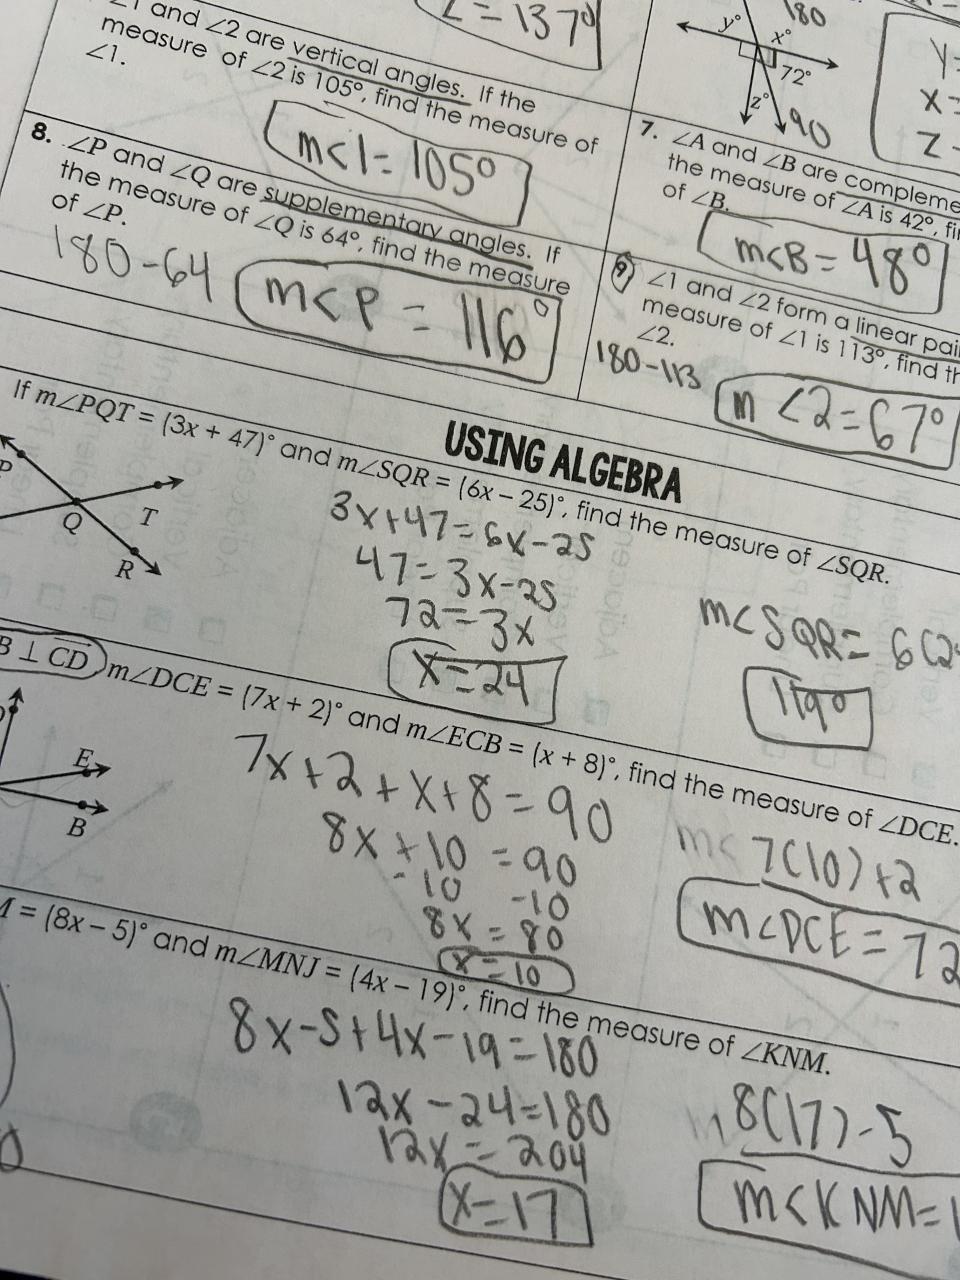 ∠1 and ∠2 are vertical angles. If the
measure of ∠2 is 105°, find the measure of
∠1.
m<1=105°
= 137°
y°
180
x°
72°
z°
90
y=
x=
z
7. ∠A and ∠B are
the measure of ∠A is 42°,
of ∠B.
m<B = 48°
8. ∠P and ∠Q are supplementary angles. If
the measure of ∠Q is 64°, find the measure
of ∠P.
180-64
m<P = 116°
9. ∠1 and ∠2 form a linear
measure of ∠1 is 113°, find
∠2.
180-113
m∠2=67°
USING ALGEBRA
If m∠PQT = (3x + 47)° and m∠SQR = (6x – 25)°, find the measure of ∠SQR.
P
Q
T
R
3x+47=6x-25
47=3x-25
72=3x
x=24
m<SQR= 6(2
119°
B ⊥ CD m∠DCE = (7x + 2)° and m∠ECB = (x + 8)°, find the measure of ∠DCE.
E
B
7x+2+x+8=90
8x+10=90
-10 -10
8x=80
x=10
m< 7(10)+2
m<DCE=72
M = (8x – 5)° and m∠MNJ = (4x – 19)°, find the measure of ∠KNM.
8x-5+4x-19=180
12x-24=180
12x=204
x=17
8(17)-5
m<KNM=1